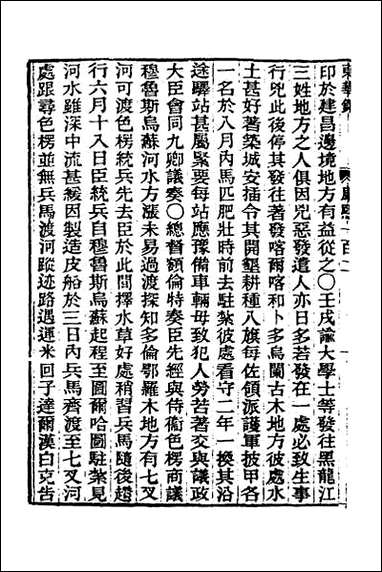 東華錄 康熙一百二
印於建昌邊境地方有益從之〇壬戌諭大學士等發往黑龍江
三姓地方之人俱因兇惡發遣人亦日多若發在一處必致生事
行兇此後停其發往著發喀爾喀和卜多烏闌古木地方彼處水
土甚好著築城安插令其開墾耕種八旗每佐領派護軍披甲各
一名於八月內馬匹肥壯時前去駐紮彼處看守二年一換其沿
途驛站甚屬緊要每站應豫備車輛毋致犯人勞苦著交與議政
大臣會同九卿議奏〇總督額倫特奏臣先經與侍衛色楞商議
穆魯斯烏蘇河水方漲未易過渡探知多倫鄂羅木地方有七叉
河可渡色楞統兵先去臣於此間擇水草好處稍習兵馬隨後趲
行六月十八日臣統兵自穆魯斯烏蘇起程至圖爾哈圖駐紮見
河水雖深中流甚緩因製造皮船於三日內兵馬齊渡至七叉河
處跟尋色楞並無兵馬渡河蹤迹路遇運米回子達爾漢白克告